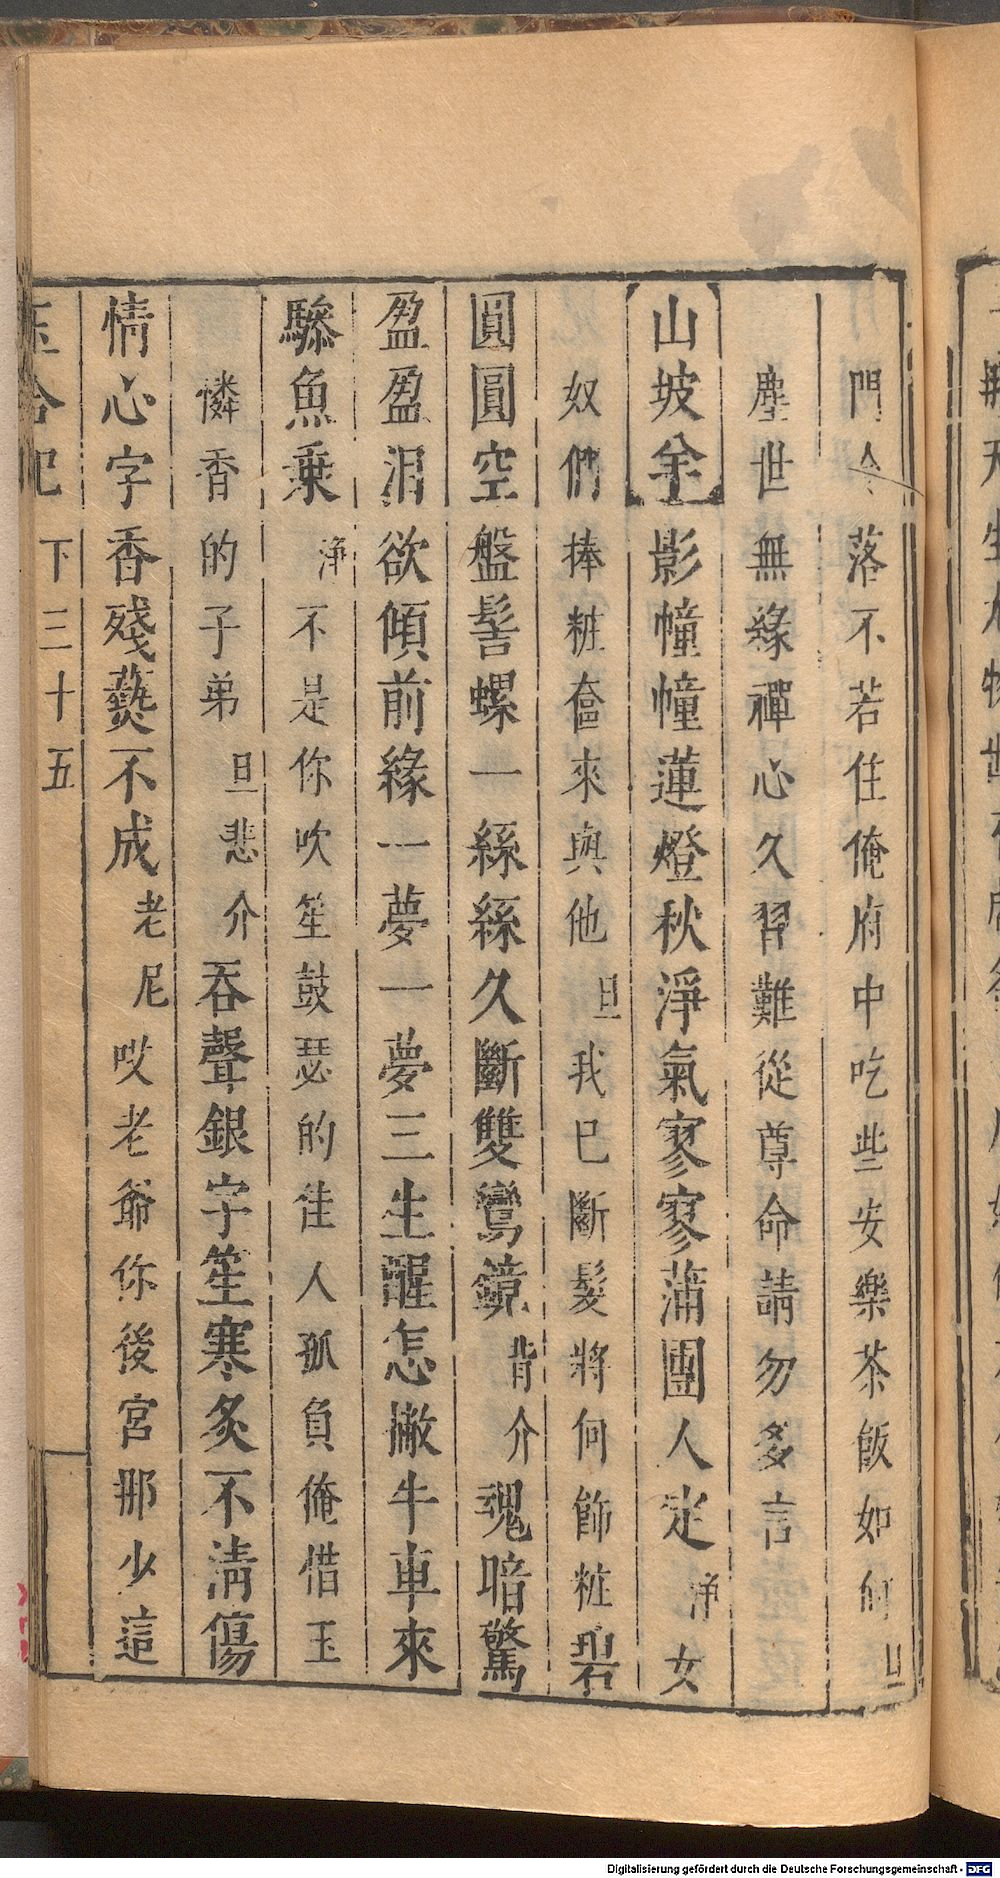 門冷落不若住俺府中吃些安樂茶飯如何旦
塵世無緣禪心久習難從尊命請勿多言
山坡羊影幢幢蓮燈秋淨氣寥寥蒲團人定淨女
奴們捧粧奩來與他旦我已斷髮將何飾粧碧
圓圓空盤髻螺一絲絲久斷雙鸞鏡背介魂暗驚
盈盈泪欲傾前緣一夢一夢三生醒怎撇牛車來
驂魚乗淨不是你吹笙鼓瑟的佳人孤負俺惜玉
憐香的子弟旦悲介吞聲銀字笙寒炙不清傷
情心字香殘爇不成老尼哎老爺你後宮那少這
玉合記 下三十五
Digitalisierung gefördert durch die Deutsche Forschungsgemeinschaft - DFG